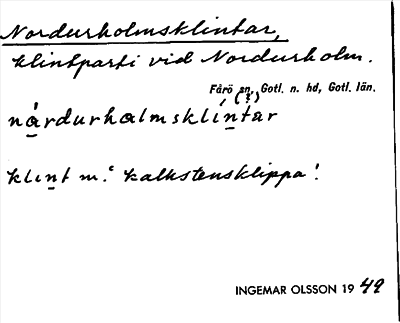 Nordurholmsklintar,
klintparti vid Nordurholm.
Fårö sn, Gotl. n. hd, Gotl. län.
(?)
nårdurhalmsklíntar
klint m. 'kalkstensklippa'.
INGEMAR OLSSON 1949